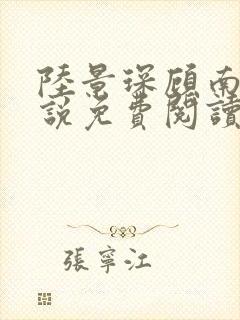 陸景琛顾南
說免費閱讀
張寧江